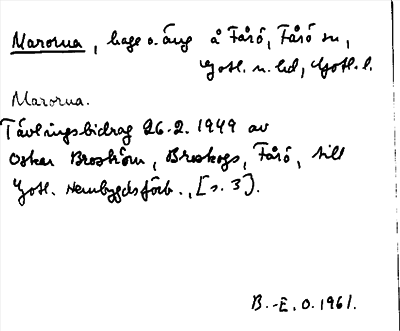 Marorna, hage o. äng å Fårö, Fårö sn,
Gotl. n. hd, Gotl. l.
Marorna.
Tävlingsbidrag 26.2. 1949 av
Oskar Broström, Broskogs, Fårö, till
Gotl. Hembygdsförb., [s. 3].
B.-E. O. 1961.